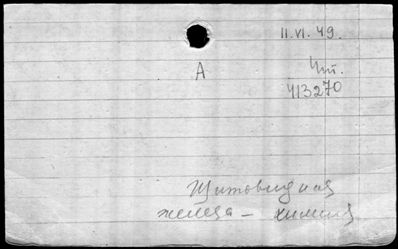 11.VI.49.
А
Чт.
413270
Щитовидная
железа - химия